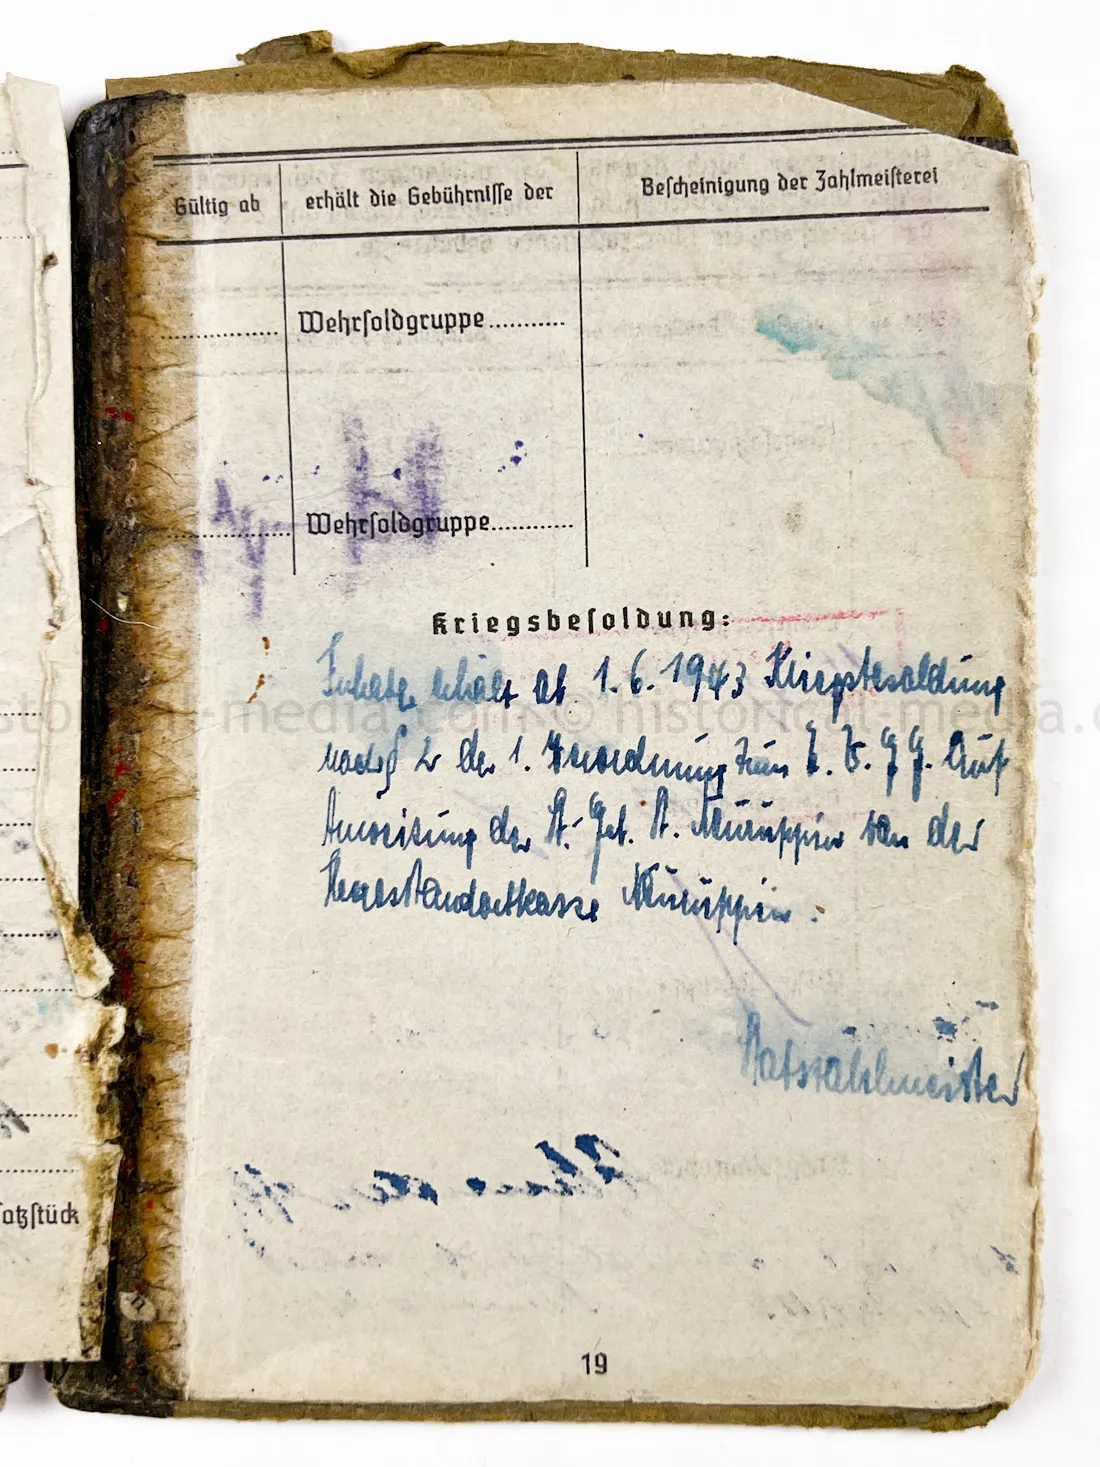 Gültig ab erhält die Gebührnisse der Bescheinigung der Zahlmeisterei
Wehrsoldgruppe
Wehrsoldgruppe
Kriegsbesoldung:
Inhaber erhält ab 1.6.1943 Kriegsbesoldung
nach § 2 der 1. Verordnung zum E. W. G G. Auf
Anweisung der H. Geb. St. Neuruppin von der
Heeresstandortkasse Neuruppin.
historical-media.com © historical-media.c
Stabszahlmeister
satzstück
19